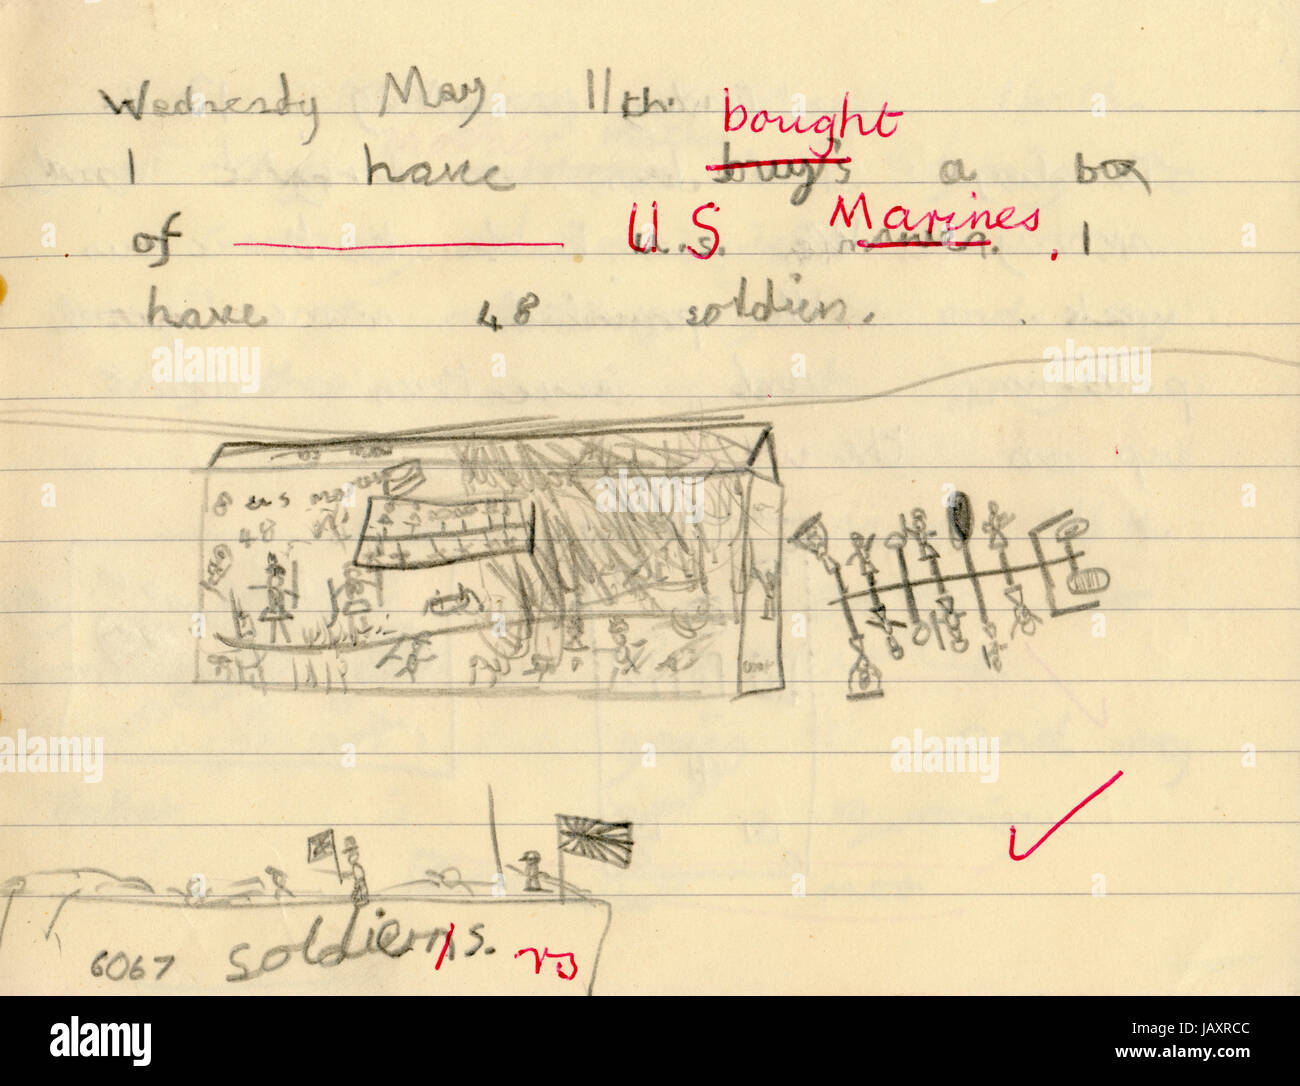 Wednesdy May 11th.
bought
I have buy's a box
U S Marines.
of u.s. . I
have 48 soldiers.
u s
48
6067 soldiers. rs
alamy
Image ID: JAXRCC
www.alamy.com